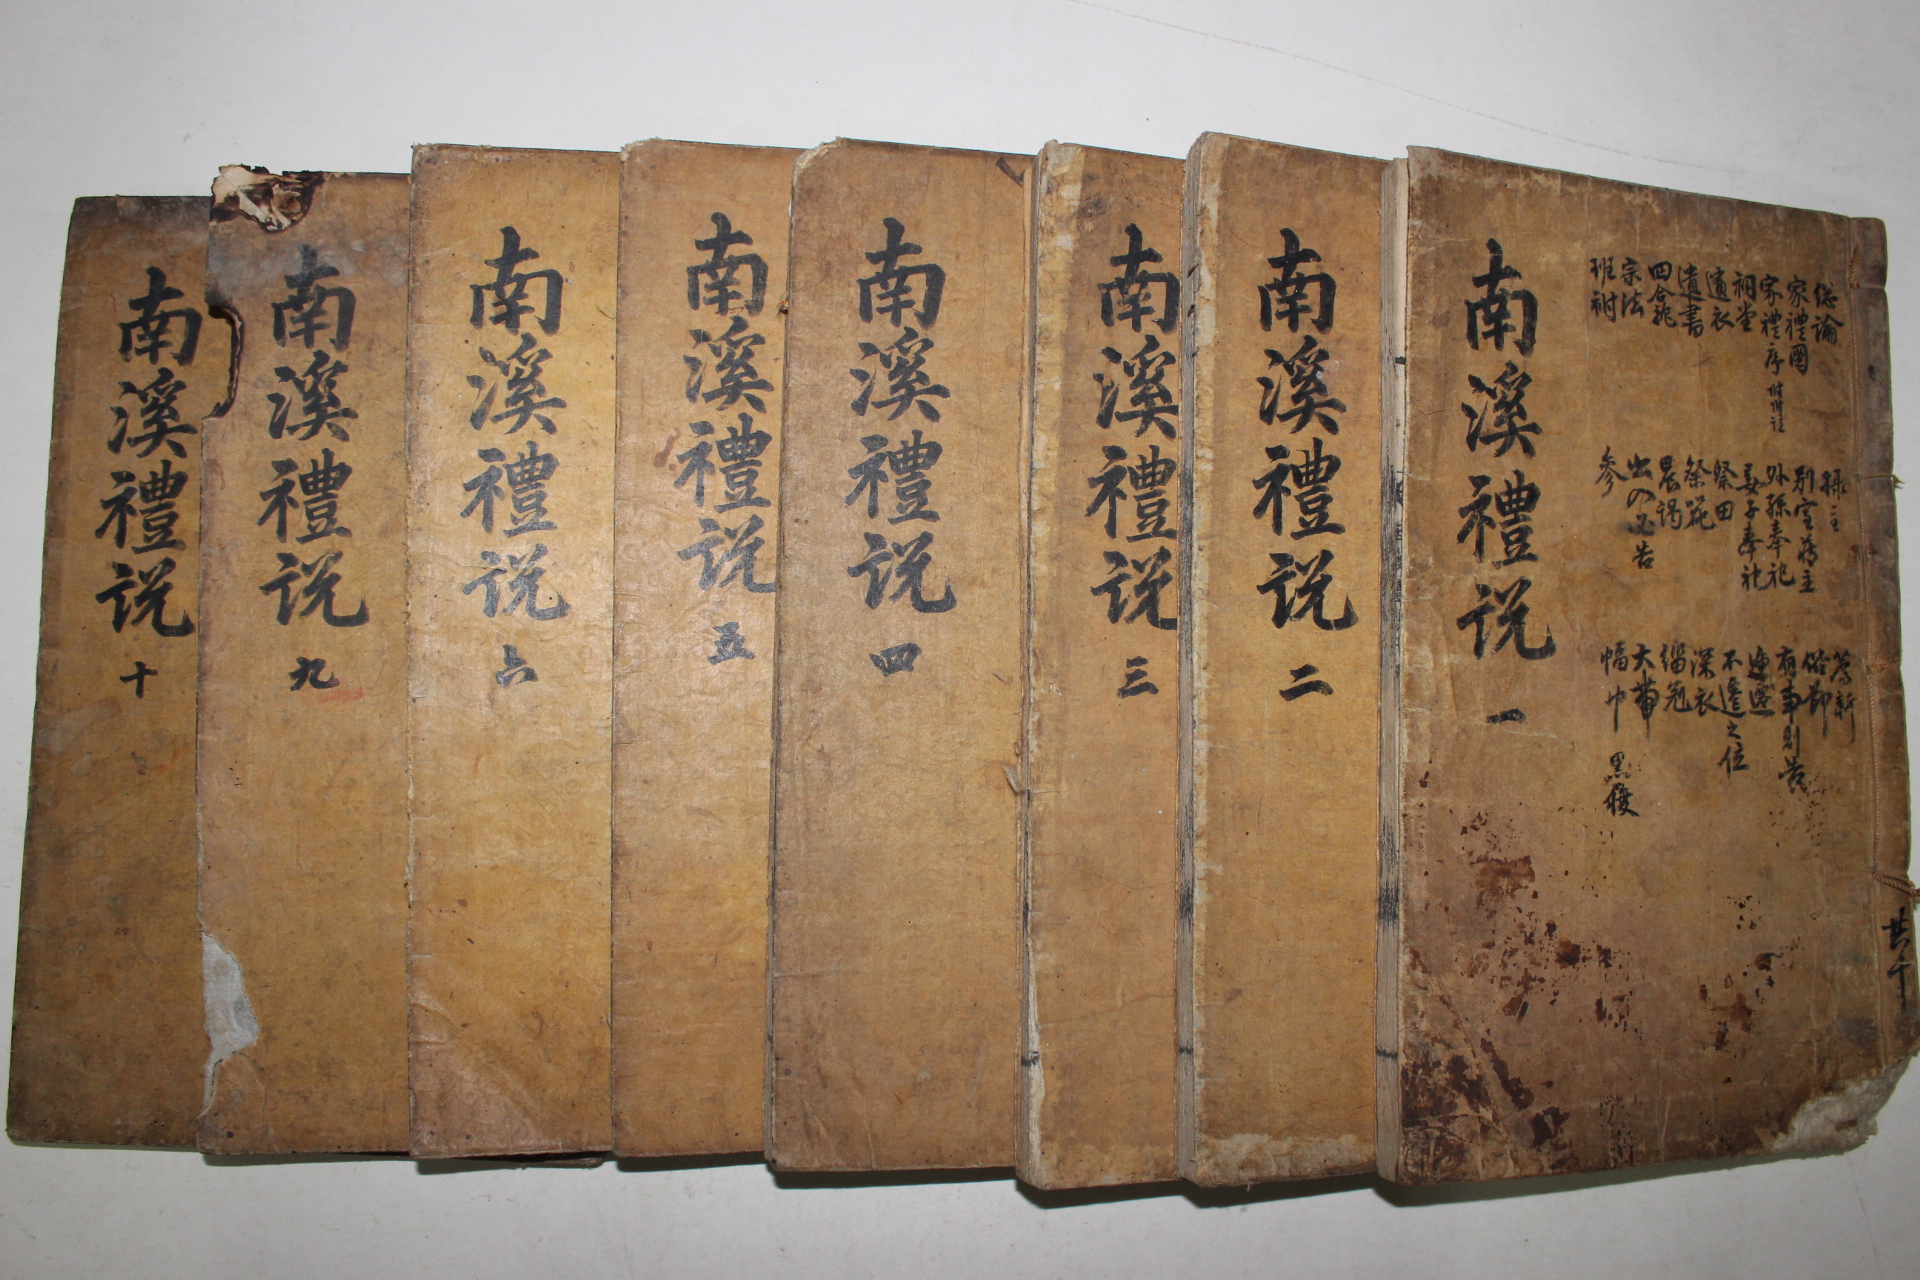 總論
家禮圖
家禮序 附附註
祠堂
遺衣
遺書
四龕
宗法
班祔
別室藏主
外孫奉祀
妾子奉祀
祭田
祭器
晨謁
出入必告
參
薦新
俗節
有事則告
遞遷
不遷之位
深衣
緇冠
大帶
幅巾 黑履
共十
南溪禮説 一
南溪禮説 二
南溪禮説 三
南溪禮説 四
南溪禮説 五
南溪禮説 六
南溪禮説 九
南溪禮説 十